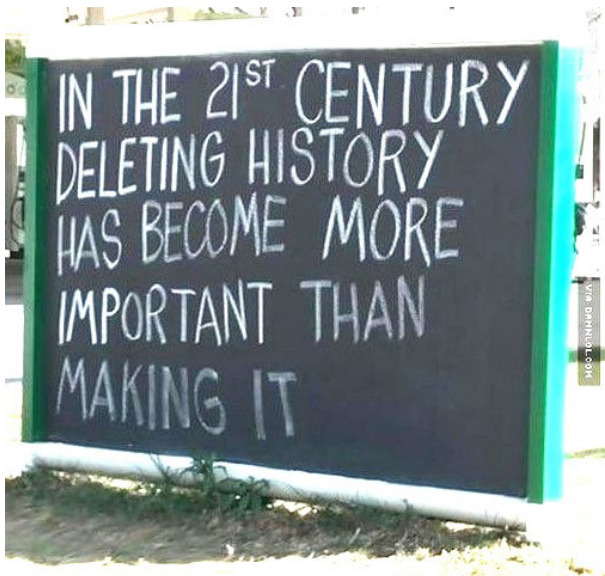 IN THE 21ST CENTURY
DELETING HISTORY
HAS BECOME MORE
IMPORTANT THAN
MAKING IT
VIA DAMNLOL.COM